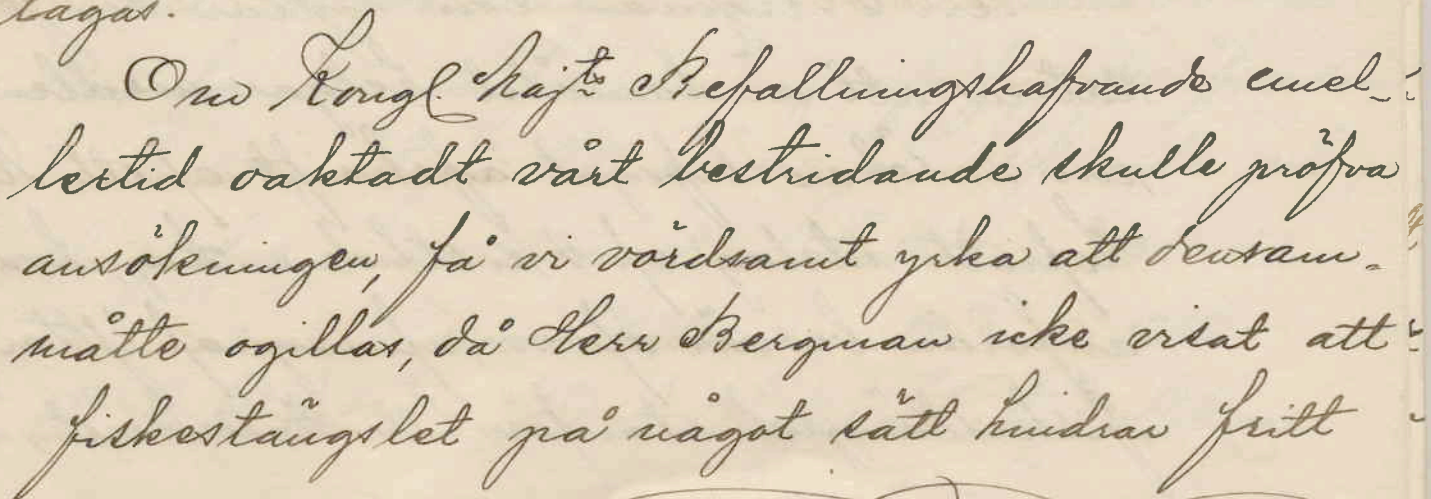 tagas.
Om Kongl. Majts Befallningshafvande emel-
lertid oaktadt vårt bestridande skulle pröfva
ansökningen, få vi vördsamt yrka att densam-
måtte ogillas, då Herr Bergman icke visat att
fiskestängslet på något sätt hindrar fritt